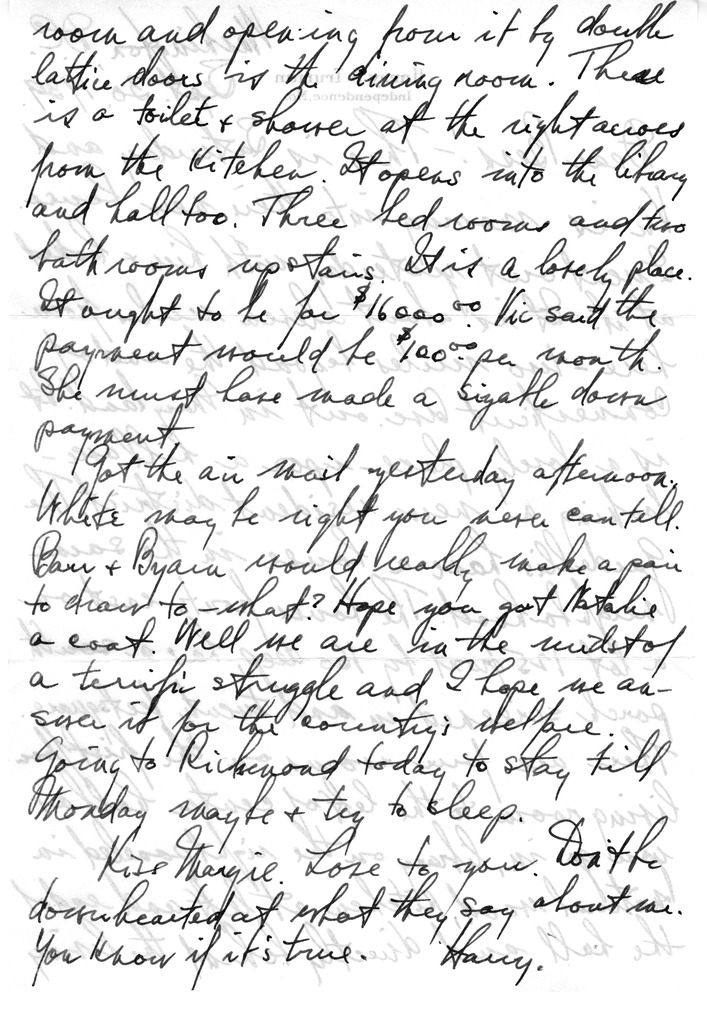 room and opening from it by double
lattice doors is the dining room. There
is a toilet & shower at the right across
from the kitchen. It opens into the library
and hall too. Three bed rooms and two
bath rooms upstairs. It is a lovely place.
It ought to be for $16000.00. Vic said the
payment would be $100.00 per month.
She must have made a sizable down
payment.
Got the air mail yesterday afternoon.
White may be right you never can tell.
Barr & Byam would really make a pair
to draw to - what? Hope you got Natalie
a coat. Well we are in the midst of
a terrific struggle and I hope we an-
swer it for the country's welfare.
Going to Richmond today to stay till
Monday maybe & try to sleep.
Kiss Margie. Love to you. Don't be
downhearted at what they say about me.
You know if it's true. Harry.